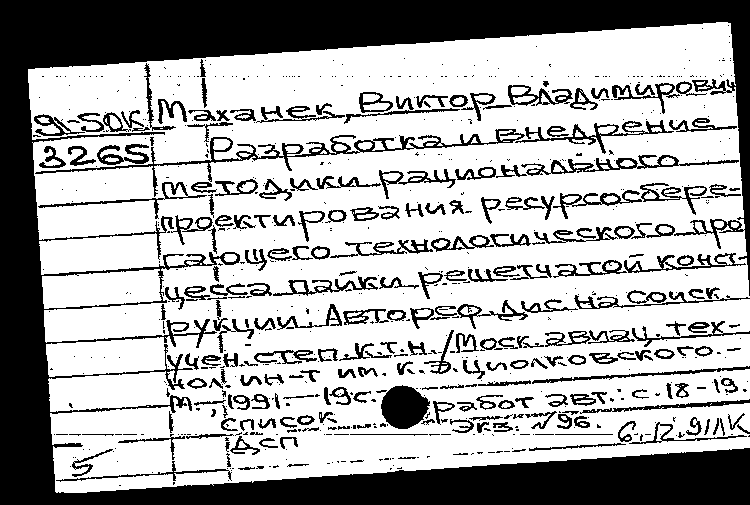 91-50К Маханек, Виктор Владимирович
3265 Разработка и внедрение
методики рационального
проектирования ресурсосбере-
гающего технологического про
цесса пайки решетчатой конст-
рукции: Автореф. дис. на соиск.
учен. степ. к.т.н. / Моск. авиац. тех-
нол. ин-т им. К.Э. Циолковского. -
М., 1991. - 19с.
список работ авт.: с. 18-19.
ДСП экз. №96.
5 6.12.91